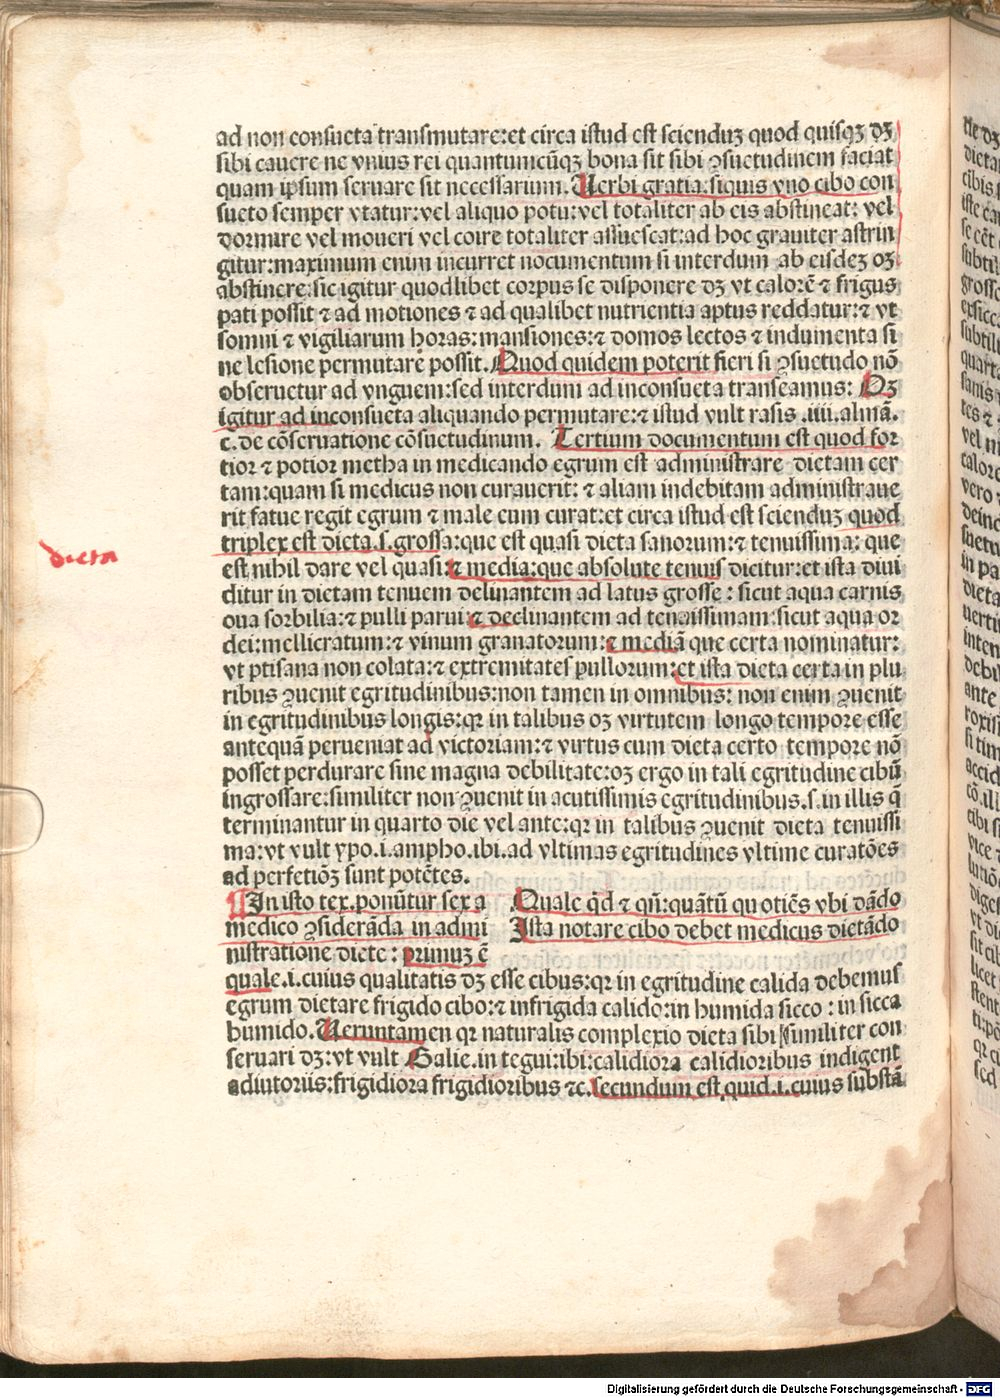 ad non consueta transmutare:et circa istud est scienduꝫ quod quisqꝫ dꝫ
sibi cauere ne vnius rei quantumcūqꝫ bona sit sibi ꝯsuetudinem faciat
quam ipsum seruare sit necessarium. Uerbi gratia:siquis vno cibo con
sueto semper vtatur:vel aliquo potu:vel totaliter ab eis abstineat: vel
dormire vel moueri vel coire totaliter assuescat:ad hoc grauiter astrin
gitur:maximum enim incurret nocumentum si interdum ab eisdeꝫ oꝫ
abstinere:sic igitur quodlibet corpus se disponere dꝫ vt calorē ⁊ frigus
pati possit ⁊ ad motiones ⁊ ad qualibet nutrientia aptus reddatur:⁊ vt
somni ⁊ vigiliarum horas:mansiones:⁊ domos lectos ⁊ indumenta si
ne lesione permutare possit. Quod quidem poterit fieri si ꝯsuetudo nō
obseruetur ad vnguem:sed interdum ad inconsueta transeamus: Oꝫ
igitur ad inconsueta aliquando permutare:⁊ istud vult rasis .iiii.almā.
c.de cōseruatione cōsuetudinum. Tertium documentum est quod for
tior ⁊ potior metha in medicando egrum est administrare dietam cer
tam:quam si medicus non curauerit: ⁊ aliam indebitam administraue
rit fatue regit egrum ⁊ male eum curat:et circa istud est scienduꝫ quod
triplex est dieta.s.grossa:que est quasi dieta sanorum:⁊ tenuissima: que
est nihil dare vel quasi:⁊ media:que absolute tenuis dicitur:et ista diui
ditur in dietam tenuem delinantem ad latus grosse : sicut aqua carnis
oua sorbilia:⁊ pulli parui:⁊ declinantem ad tenuissimam:sicut aqua or
dei:mellicratum:⁊ vinum granatorum:⁊ mediā que certa nominatur:
vt ptisana non colata:⁊ extremitates pullorum:et ista dieta certa in plu
ribus ꝯuenit egritudinibus:non tamen in omnibus: non enim ꝯuenit
in egritudinibus longis:qꝛ in talibus oꝫ virtutem longo tempore esse
antequā perueniat ad victoriam:⁊ virtus cum dieta certo tempore nō
posset perdurare sine magna debilitate:oꝫ ergo in tali egritudine cibū
ingrossare:similiter non ꝯuenit in acutissimis egritudinibus.s.in illis q̄
terminantur in quarto die vel ante:qꝛ in talibus ꝯuenit dieta tenuissi
ma:vt vult ypo.i.ampho.ibi.ad vltimas egritudines vltime curatōes
ad perfetiōꝫ sunt potētes.
¶In isto tex.ponūtur sex a
medico ꝯsiderāda in admi
nistratione diete : primuꝫ ē
Quale qd ⁊ qn̄:quātū quotiēs vbi dādo
Ista notare cibo debet medicus dietādo
quale.i.cuius qualitatis dꝫ esse cibus:qꝛ in egritudine calida debemus
egrum dietare frigido cibo:⁊ infrigida calido:in humida sicco : in sicca
humido. Ueruntamen qꝛ naturalis complexio dieta sibi similiter con
seruari dꝫ:vt vult Galie.in tegui:ibi:calidiora calidioribus indigent
adiutoriis:frigidiora frigidioribus ⁊c. secundum est quid.i.cuius substā
dieta
Digitalisierung gefördert durch die Deutsche Forschungsgemeinschaft - DFG